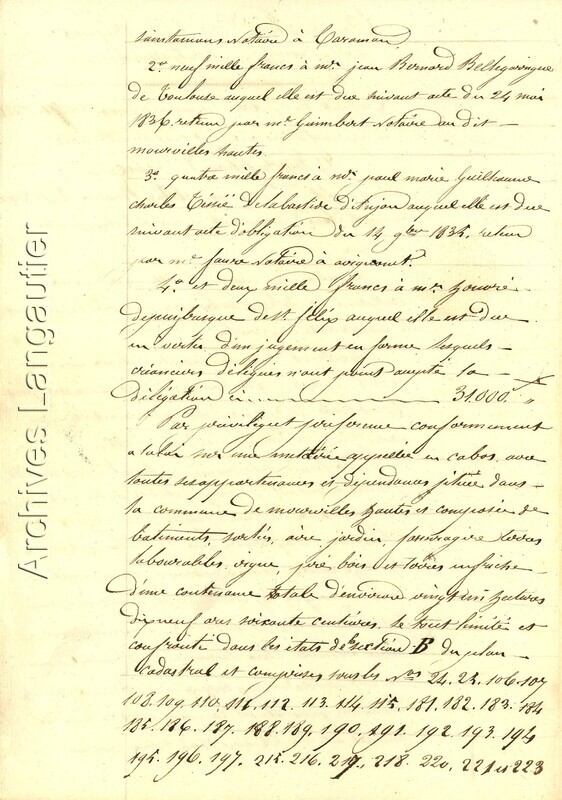 Notaire à Caraman.
2° neuf mille francs à mr. jean Bernard Bellegarrigue
de Toulouse auquel elle est due suivant acte du 24 mai
1836 retenu par mr Gaimbert Notaire au dit
mourvilles hautes.
3° quatre mille francs à mr. paul marie Guilhaume
charles Delabastide d'Anjou auquel elle est due
suivant acte d'obligation du 14 9bre 1835, retenu
par mr faure Notaire à avignonet.
4° et deux mille francs à mr.
Depuybusque de st. félix auquel elle est due
en vertu d'un jugement en forme lesquels
créanciers délégués n'ont point accepté la
délégation ci 31.000. "
Par privilège conformément
a la loi sur une métérie appellée en cabos, avec
toutes ses appartenances et dépendances située dans
la commune de mourvilles hautes et composée de
batiments, sortès, aire jardin, terres
labourables, vigne, pré, bois et terres en friche
d'une contenance totale d'environ vingt six hectares
dix neuf ares soixante centiares, le tout limité et
confronté dans les états de section B du plan
cadastral et comprises sous les Nos 24. 25. 106. 107
108. 109. 110. 111. 112. 113. 114. 115. 181. 182. 183. 184
185. 186. 187. 188. 189. 190. 191. 192. 193. 194
195. 196. 197. 215. 216. 217. 218. 220. 221 et 223
Archives Langautier